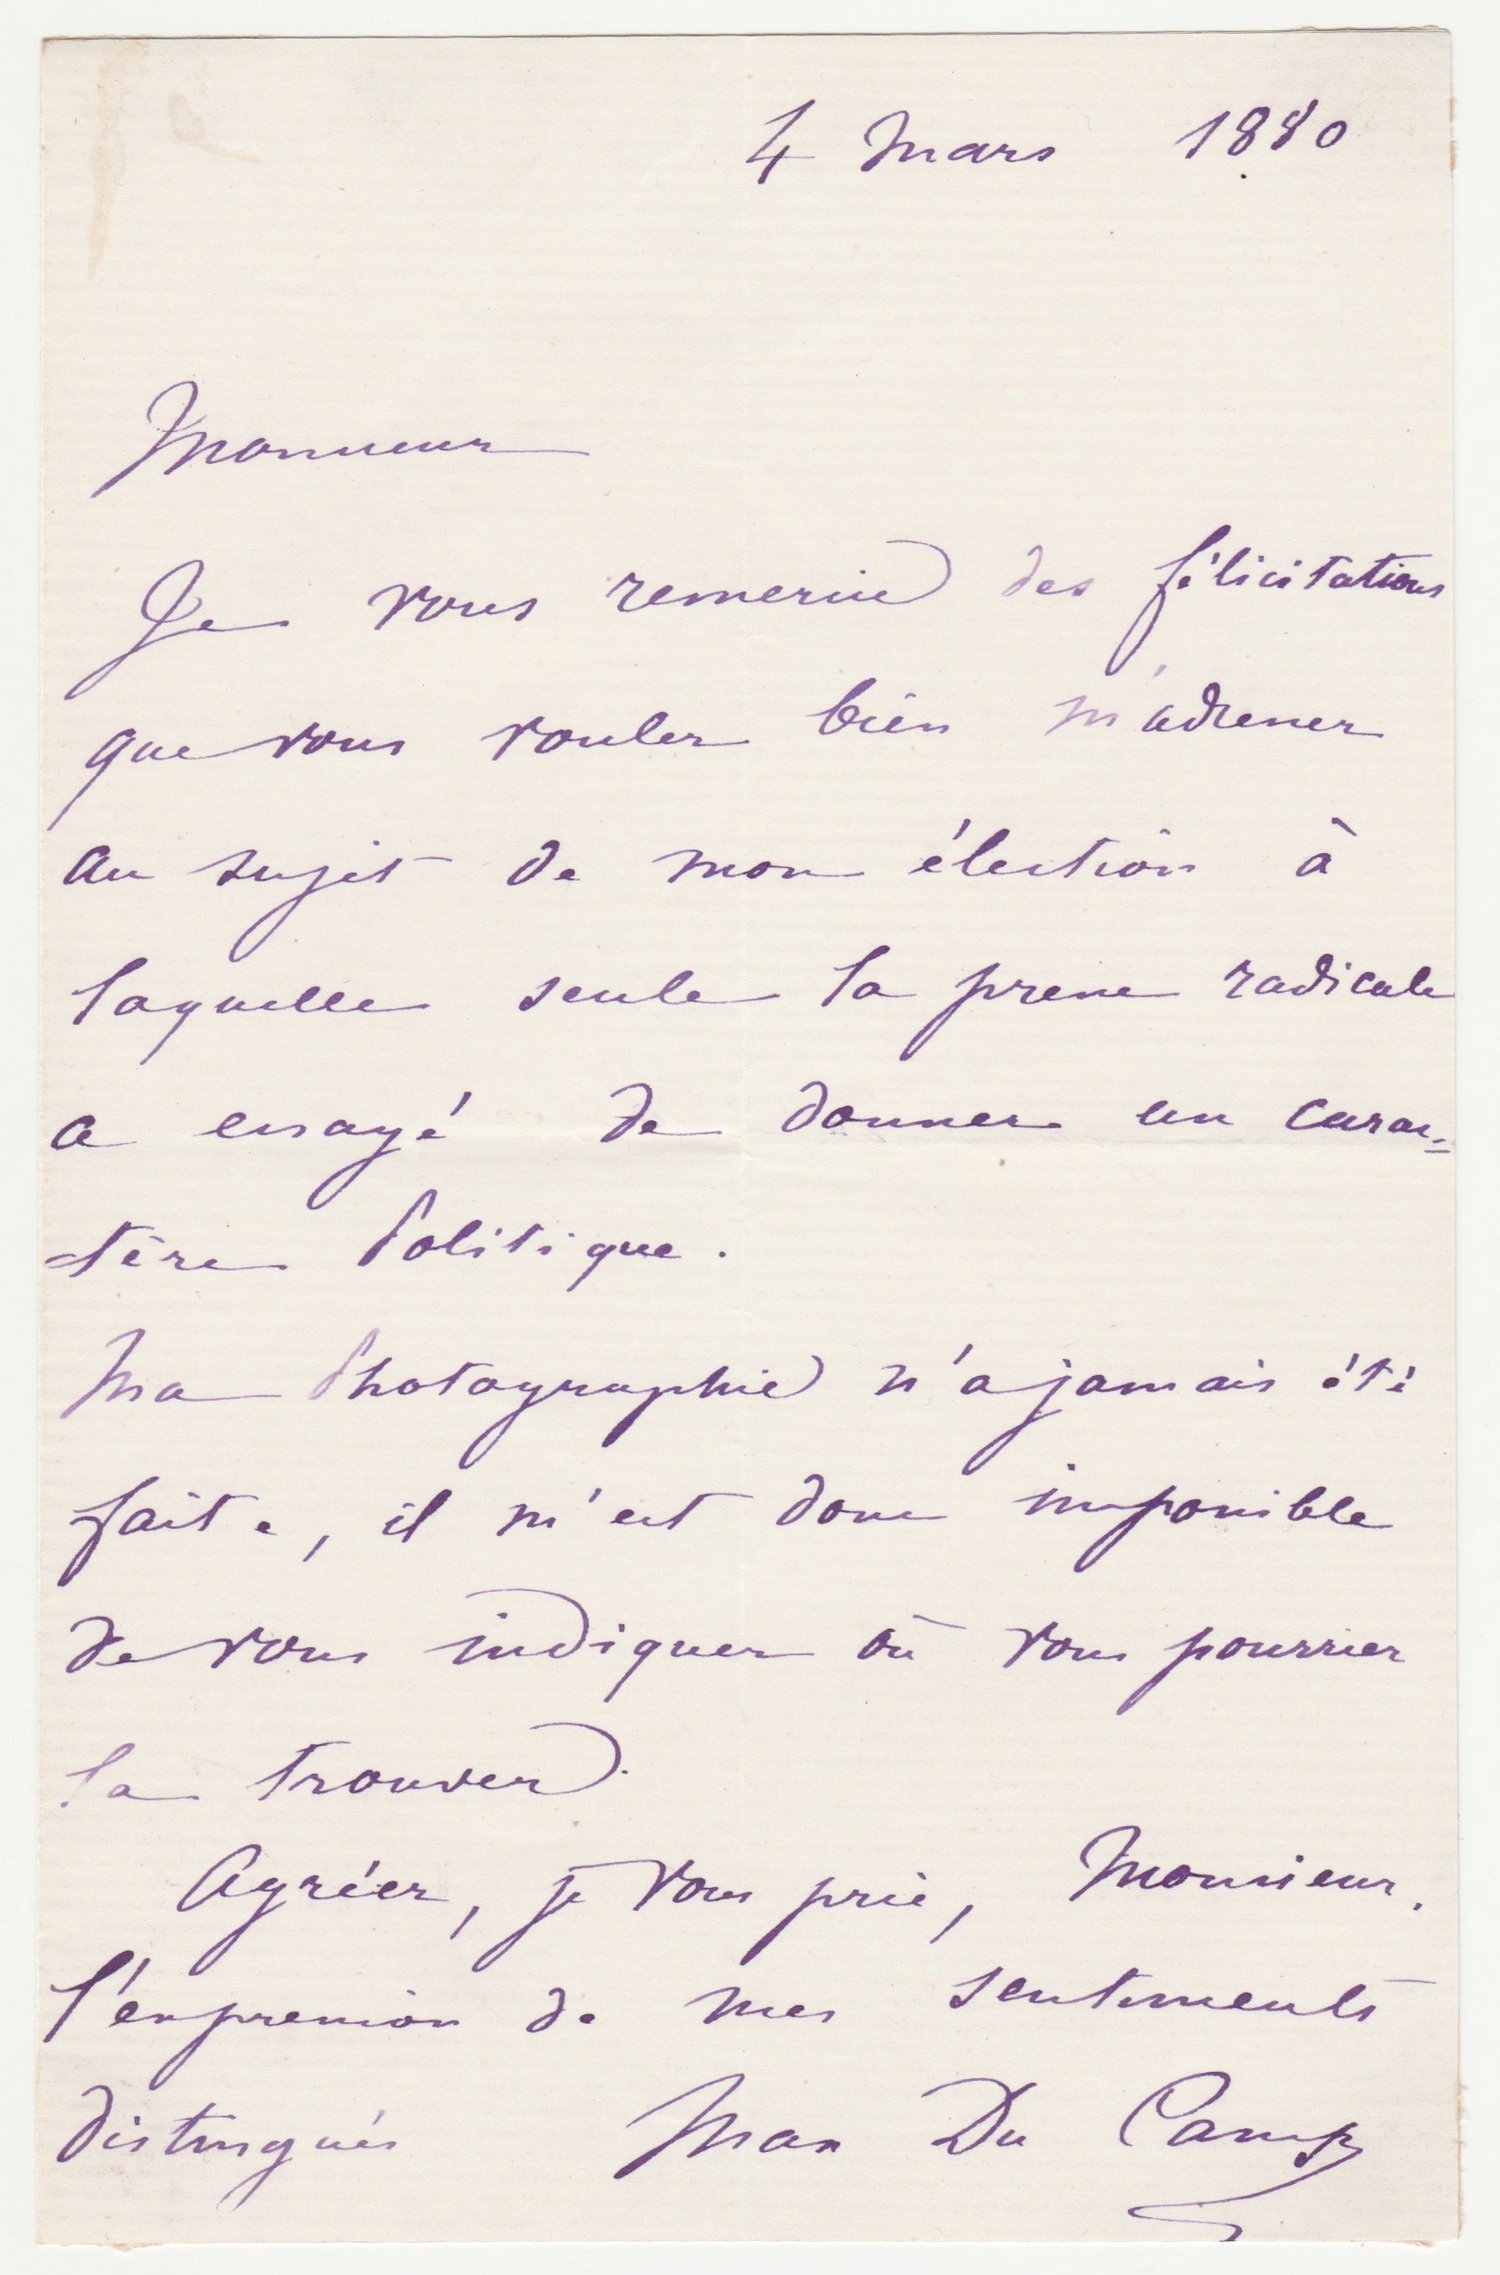 4 Mars 1880
Monsieur
Je vous remercie des félicitations
que vous voulez bien m'adresser
au sujet de mon élection à
laquelle seule la presse radicale
a essayé de donner un carac-
tère Politique.
Ma Photographie n'a jamais été
faite, il m'est donc impossible
de vous indiquer où vous pourriez
la trouver.
Agréez, je vous prie, Monsieur,
l'expression de mes sentiments
distingués Max Du Camp